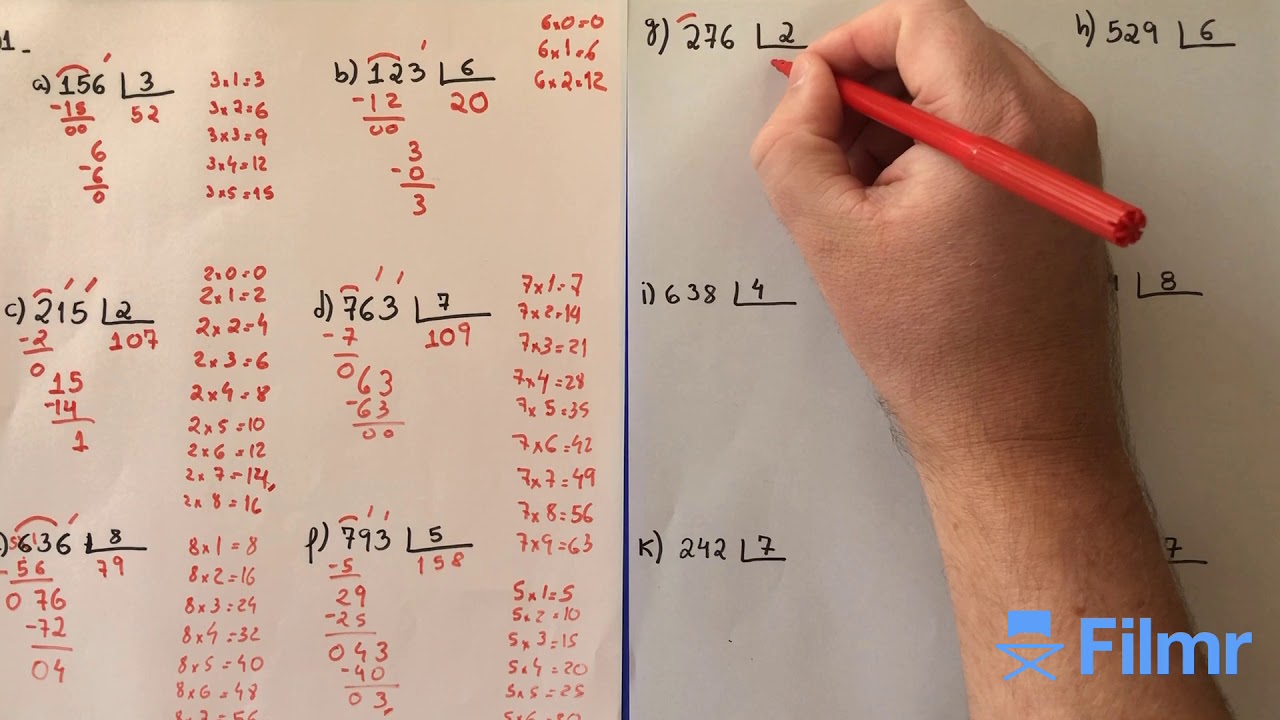 01-
a) 156 3
-15 52
00
6
-6
0
3x1=3
3x2=6
3x3=9
3x4=12
3x5=15
b) 123 6
-12 20
00
3
-0
3
6x0=0
6x1=6
6x2=12
c) 215 2
-2 107
0
15
-14
1
2x0=0
2x1=2
2x2=4
2x3=6
2x4=8
2x5=10
2x6=12
2x7=14
2x8=16
d) 763 7
-7 109
0
63
-63
00
7x1=7
7x2=14
7x3=21
7x4=28
7x5=35
7x6=42
7x7=49
7x8=56
7x9=63
) 636 8
-56 79
076
-72
04
8x1=8
8x2=16
8x3=24
8x4=32
8x5=40
8x6=48
8x7=56
f) 793 5
-5 158
29
-25
043
-40
03
5x1=5
5x2=10
5x3=15
5x4=20
5x5=25
g) 276 2
h) 529 6
i) 638 4
8
k) 242 7
7
Filmr